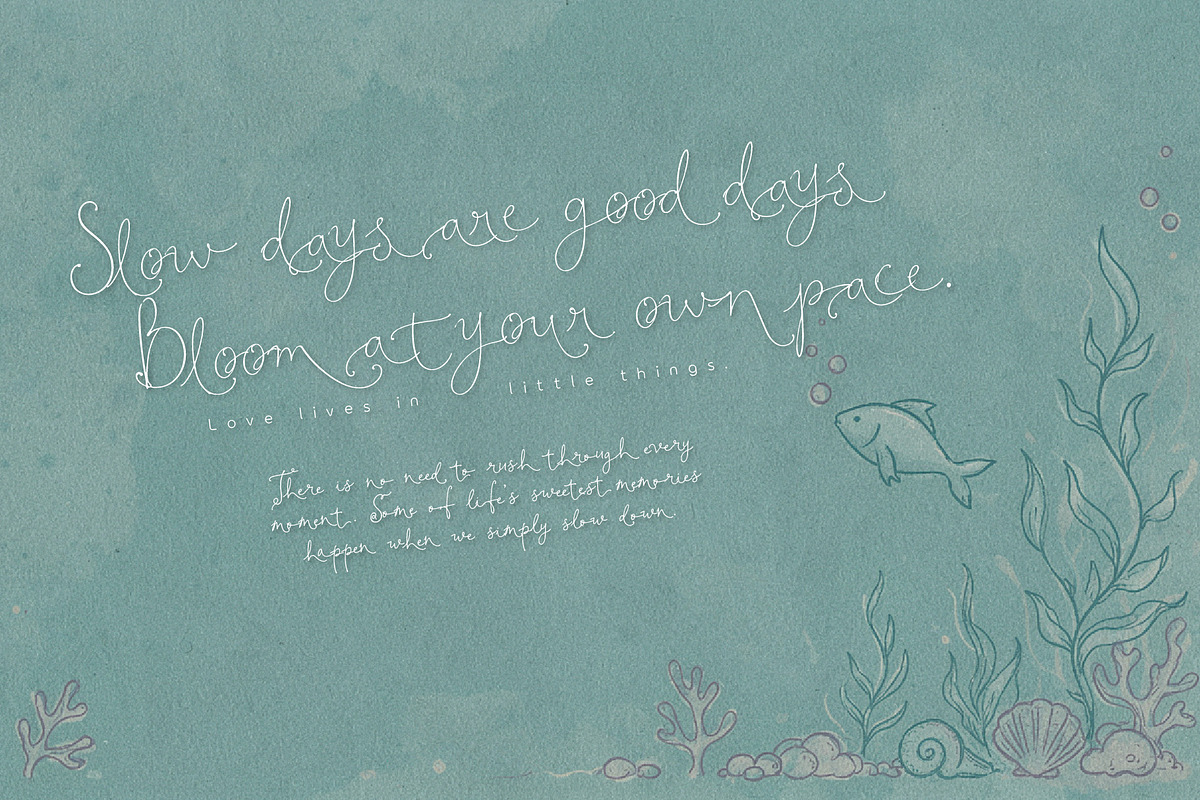 Slow days are good days
Bloom at your own pace.
Love lives in little things.
There is no need to rush through every
moment. Some of life's sweetest memories
happen when we simply slow down.